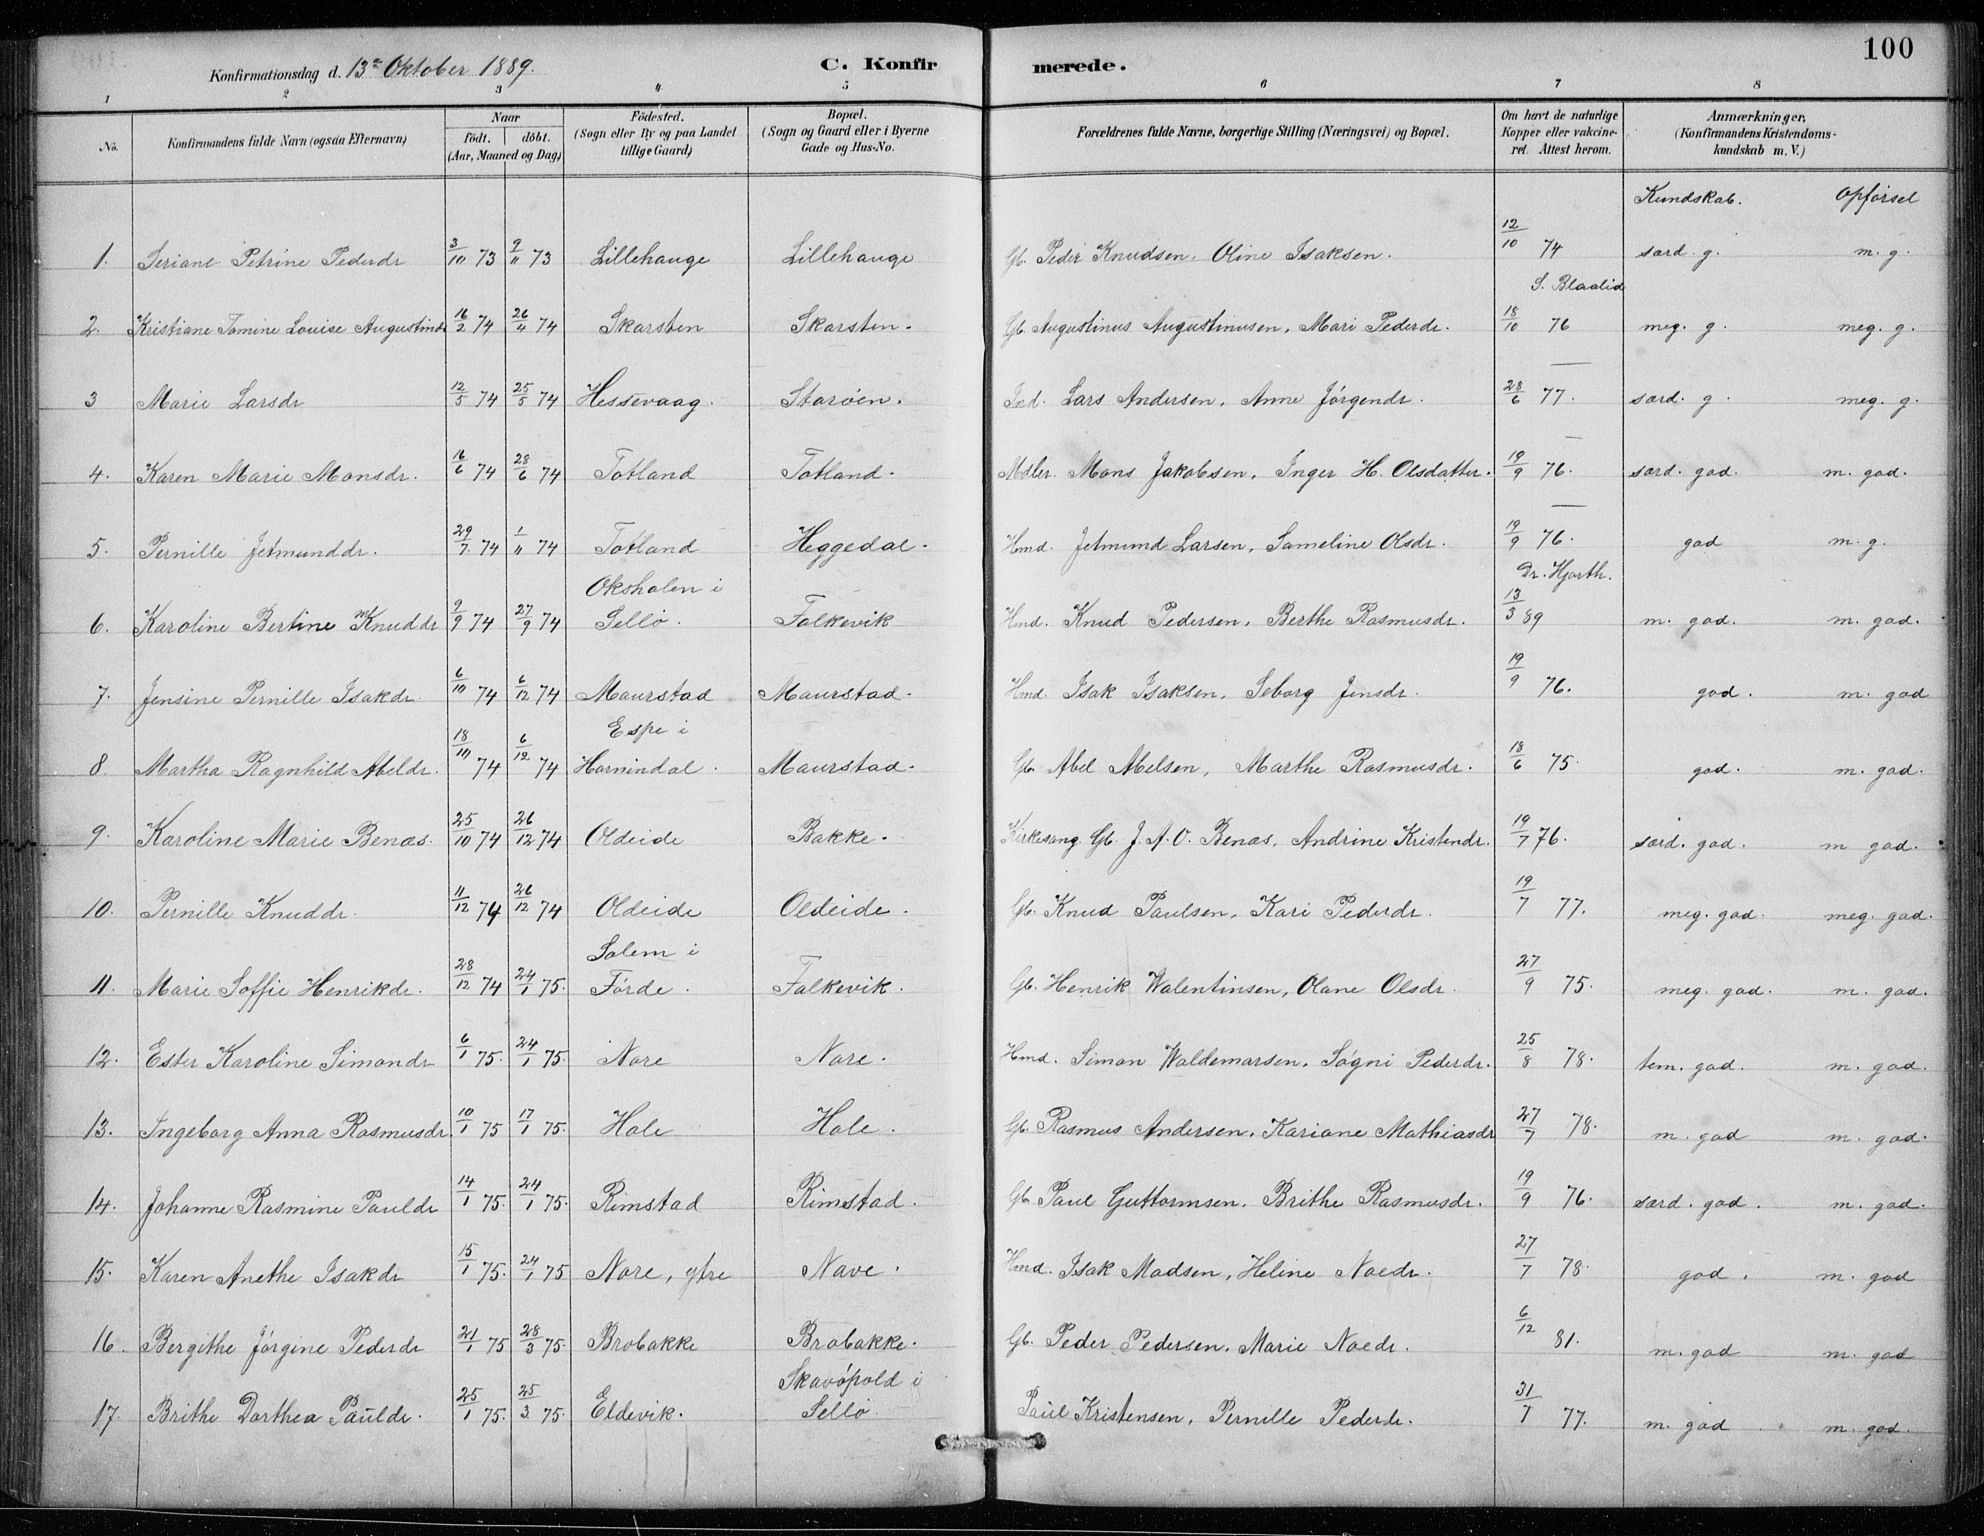 100
Konfirmationsdag d. 13de Oktober 1889. C. Konfirmerede.
1 2 3 4 5 6 7 8
No. Konfirmandens fulde Navn (ogsaa Efternavn) Naar födt. döbt. (Aar, Maaned og Dag) Födested. (Sogn eller By og paa Landet tillige Gaard) Bopæl. (Sogn og Gaard eller i Byerne Gade og Hus-No. Forældrenes fulde Navne, borgerlige Stilling (Næringsvei) og Bopæl. Om havt de naturlige Kopper eller vakcineret. Attest herom. Anmærkninger, (Konfirmandens Kristendomskundskab m. V.)
Kundskab. Opförsel
1. Seriane Petrine Pedersdr 3/10 73 9/11 73 Lillehauge Lillehauge Gb. Peder Knudsen, Oline Isaksen. 12/10 74 S. Blaalid særd. g. m. g.
2. Kristiane Tomine Louise Augustinds 16/2 74 26/4 74 Skarsten Skarsten. Gb. Augustinus Augustinusen, Mari Pederdr. 18/10 76 — meg. g. meg. g.
3 Marie Larsdr 12/5 74 25/5 74 Hessevaag. Staröen. Ind. Lars Andersen, Anne Jörgendr. 28/6 77. — særd. g. meg. g.
4. Karen Marie Monsdr. 16/6 74 28/6 74 Totland Totland. Mdler. Mons Jakobsen, Inger H. Olsdatter. 19/9 76. — særd. god. m. god.
5. Pernille Jetmunddr. 29/7 74 1/11 74 Totland Heggedal. Hmd. Jetmund Larsen, Sameline Olsdr. 19/9 76. god m. g.
6. Karoline Bertine Knuddr 9/9 74 27/9 74 Oksholen i Sellö. Falkevik Hmd. Knud Pedersen, Berthe Rasmusdr. Dr. Hjorth. 13/3 89 m. god. m. god.
7. Jensine Pernille Isakdr. 6/10 74 6/12 74 Maurstad Maurstad. Hmd. Isak Isaksen, Seborg Jensdr. 19/9 76. god. m. god
8. Martha Ragnhild Abeldr. 18/10 74 6/12 74 Espe i Hornindal. Maurstad. Gb. Abel Abelsen, Marthe Rasmusdr. 18/6 75. god. m. god.
9. Karoline Marie Benæs. 25/10 74 26/12 74 Oldeide Bakke. Kirkesang. Gb. J. A. O. Benæs, Andrine Kristendr. 19/7 76. særd. god. m god.
10. Pernille Knuddr. 11/12 74 26/12 74 Oldeide Oldeide. Gb. Knud Paulsen, Kari Pederdr. 19/7 77. meg. god. meg. god.
11. Marie Soffie Henrikdr. 28/12 74 24/1 75. Solem i Förde. Falkevik. Gb. Henrik Walentinsen, Olane Olsdr. 27/9 75. meg. god. m. god.
12. Ester Karoline Simondr 6/1 75. 24/1 75. Nore Nore. Hmd. Simon Waldemarsen, Søgni Pederdr. 25/8 78. tem. god. m. god.
13. Ingeborg Anna Rasmusdr. 10/1 75 17/1 75. Hole Hole. Gb. Rasmus Andersen, Kariane Mathiasdr 27/7 78. m. god m. god.
14. Johanne Rasmine Pauldr 14/1 75. 24/1 75. Rimstad Rimstad. Gb. Paul Guttormsen, Brithe Rasmusdr. 19/9 76. særd. god. m. god.
15. Karen Anethe Isakdr 15/1 75. 24/1 75 Nore, ytre Nave. Hmd. Isak Madsen, Heline Noedr. 27/7 78. god. m. god
16. Bergithe Jörgine Pederdr 21/1 75 28/3 75. Brobakke Brobakke. Gb. Peder Pedersen, Marie Noedr. 6/12 81. m. god m. god
17. Brithe Dorthea Pauldr. 25/1 75. 25/3. 75. Eldevik. Skavöpold i Sellö. Paul Kristensen, Pernille Pederdr. 31/7 77. m. god m. god.